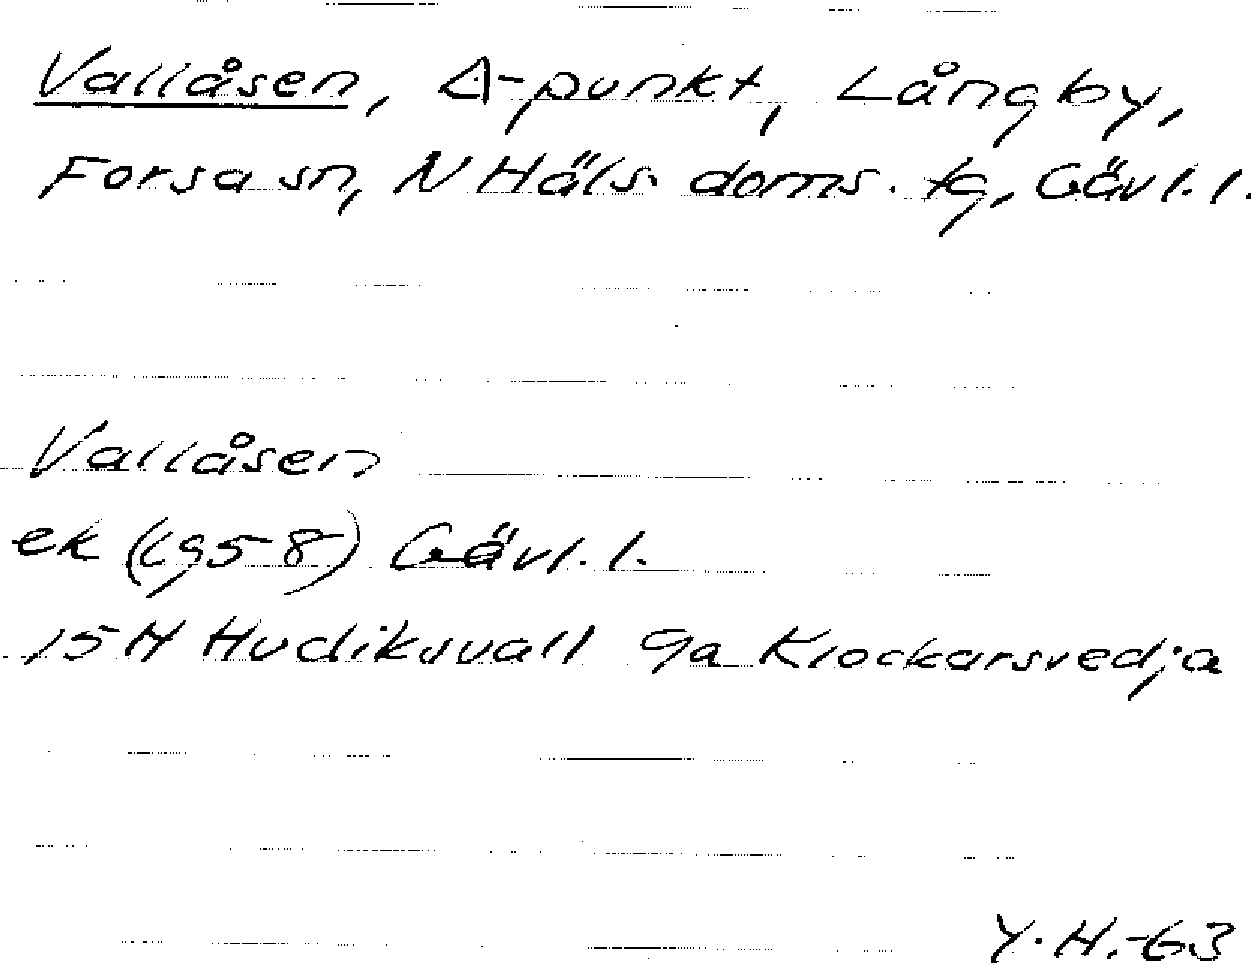 Vallåsen, Δ-punkt, Långby,
Forsa sn, N Häls. doms. tg, Gävl. l.
Vallåsen
ek (1958) Gävl. l.
15H Hudiksvall 9a Klockarsvedja
Y. H. -63